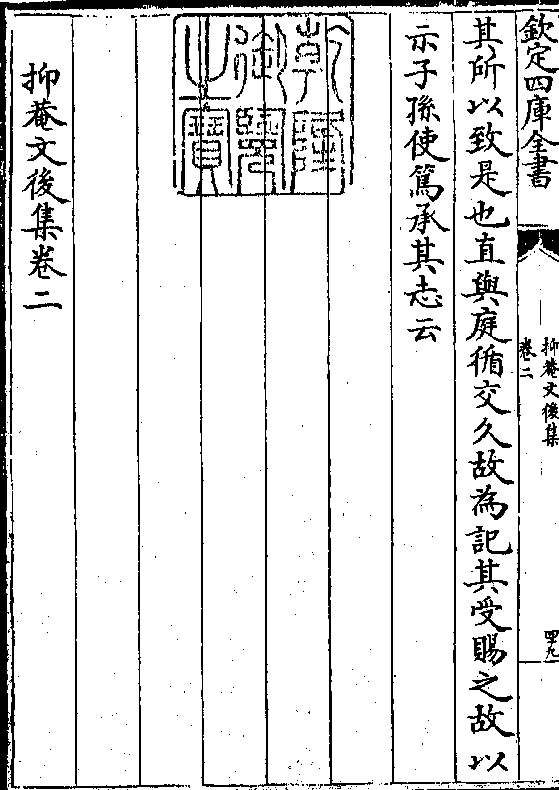 欽定四庫全書
抑菴文後集
卷二
四九
其所以致是也直與庭循交久故為記其受賜之故以
示子孫使篤承其志云
乾隆
御覽
之寶
抑菴文後集卷二